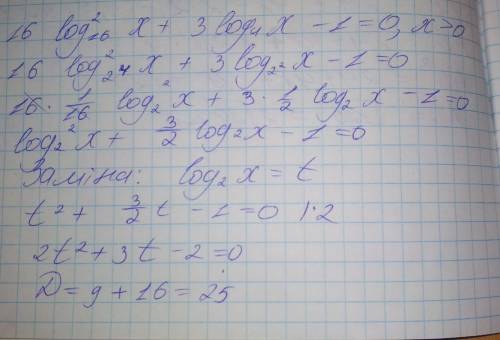 16 log²₁₆ x + 3 log₄ x - 1 = 0, x > 0
16 log²₂⁴ x + 3 log₂² x - 1 = 0
16 · 1/16 log₂² x + 3 · 1/2 log₂ x - 1 = 0
log₂² x + 3/2 log₂ x - 1 = 0
Заміна: log₂ x = t
t² + 3/2 t - 1 = 0 |·2
2t² + 3t - 2 = 0
D = 9 + 16 = 25